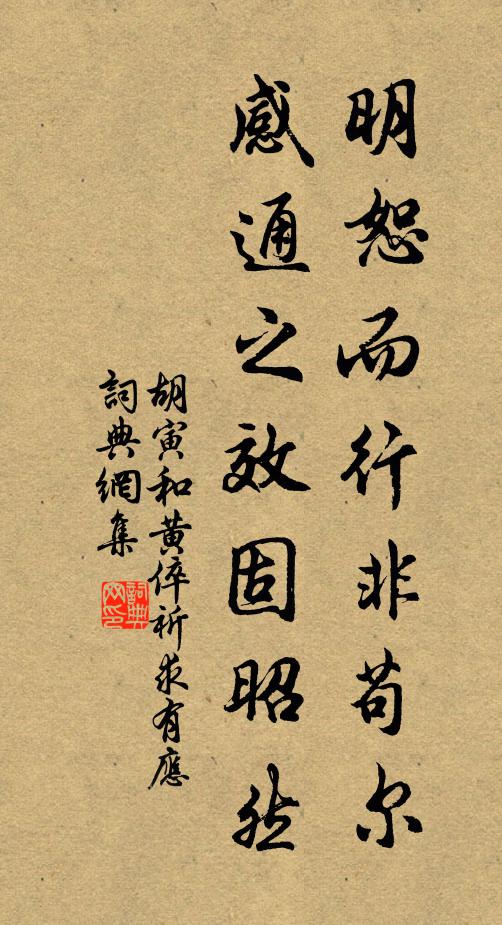 明恕而行非苟尔
感通之效固昭然
胡寅和黄倅祈求有應
詞典網集
詞典网印